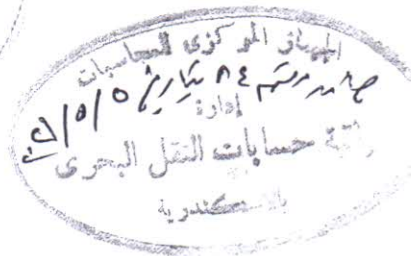 الجهاز المركزى للمحاسبات
صادر رقم ٨٤ بتاريخ ٥/٥/
إدارة
حسابات النقل البحرى
بالاسكندرية